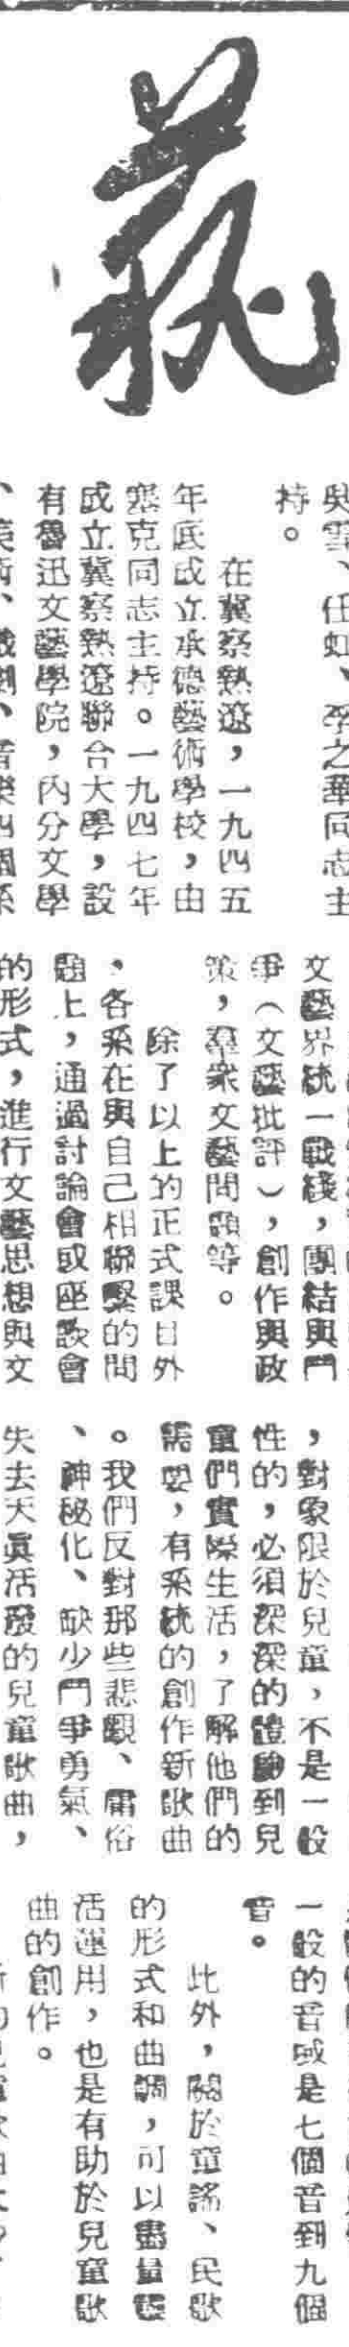 藝
吳雪、任虹、李之華同志主
持。
在冀察熱遼，一九四五
年底成立承德藝術學校，由
塞克同志主持。一九四七年
成立冀察熱遼聯合大學，設
有魯迅文藝學院，內分文學
、美術、戲劇、音樂四個系
文藝界統一戰綫，團結與鬥
爭（文藝批評），創作與政
策，羣衆文藝問題等。
除了以上的正式課目外
，各系在與自己相聯繫的問
題上，通過討論會或座談會
的形式，進行文藝思想與文
，對象限於兒童，不是一般
性的，必須深深的體驗到兒
童們實際生活，了解他們的
需要，有系統的創作新歌曲
。我們反對那些悲觀、庸俗
、神秘化、缺少鬥爭勇氣、
失去天眞活潑的兒童歌曲，
一般的音域是七個音到九個
音。
此外，關於童謠、民歌
的形式和曲調，可以盡量靈
活運用，也是有助於兒童歌
曲的創作。